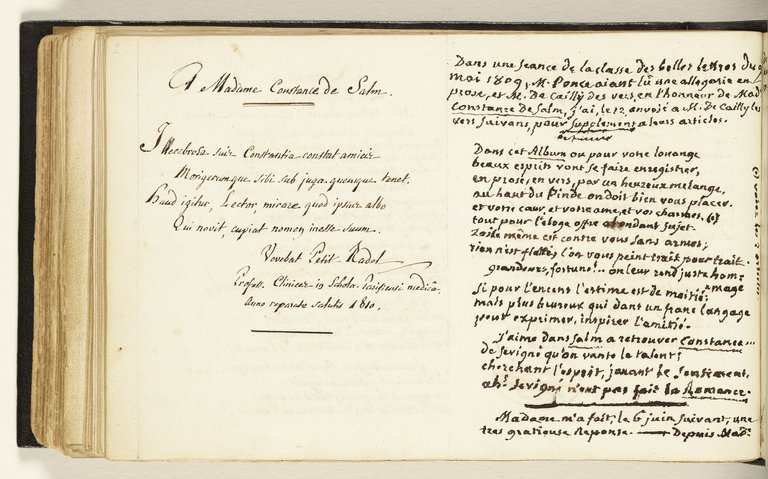 A Madame Constance de Salm.
Illecebrosa suis Constantia constat amicis
Morigerumque sibi sub juga quemque tenet.
Haud igitur, Lector, mirare quod ipsius albo
Qui novit, cupiat nomen inesse suum.
Vovebat Petit-Radel
Profess. Clinices in Schola Parisiensi medica.
Anno reparatæ salutis 1810.
Dans une seance de la classe des belles lettres du 9
mai 1809, M. Ponce aiant lû une allegorie en
prose, et M. De Cailly des vers, en l'honneur de Mad.
Constance de Salm, j'ai, le 12, envoié a M. De Cailly les
vers suivans, pour supplement a leurs articles.
Dans cet Album ou pour votre louange
beaux esprits vont se faire enregistrer,
en prose, en vers, par un heureux mélange,
au haut du Pinde on doit bien vous placer.
et votre cœur, et votre ame, et vos charmes, (1)
tout pour l'éloge offre abondant sujet.
Zoïle même est contre vous sans armes;
rien n'est flatté; l'on vous peint trait pour trait.
grandeurs, fortune!... on leur rend juste hommage
Si pour l'encens l'estime est de moitié:
mais plus heureux qui dans un franc langage
peut exprimer, inspirer l'amitié.
J'aime dans Salm a retrouver Constance...
de Sevigné qu'on vante le talent;
cherchant l'esprit, jouant le sentiment,
ah! Sevigné n'eut pas fait la Romance.
Madame m'a fait, le 6 juin suivant, une
tres gratieuse Reponse. — Depuis Mad.e